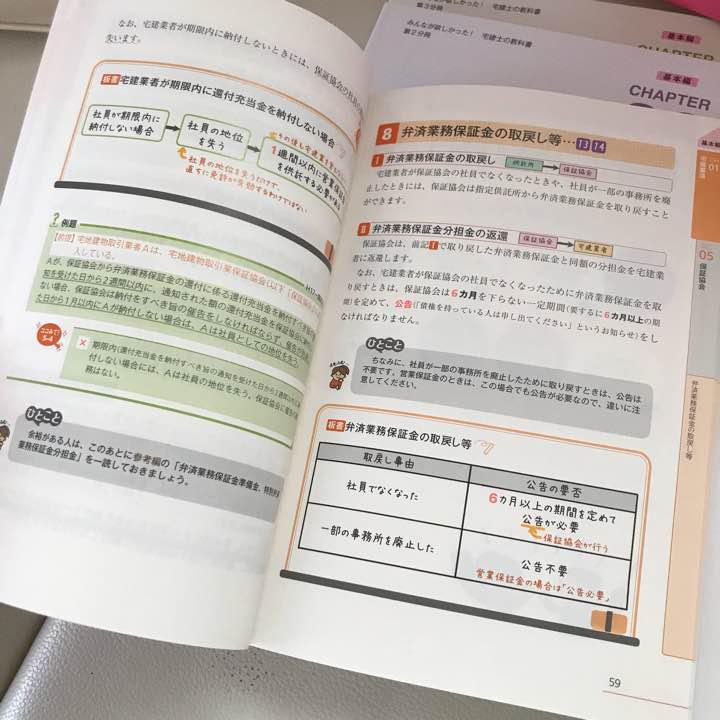 なお、宅建業者が期限内に納付しないときには、保証協会の社員の
失います。
板書 宅建業者が期限内に還付充当金を納付しない場合
社員が期限内に
納付しない場合
社員の地位
を失う
1週間以内に営業保証金
を供託する必要がある
社員の地位を失うだけで、
直ちに免許が失効するわけではない
例題
【前提】宅地建物取引業者Aは、宅地建物取引業保証協会(以下「保証協会
入している。
Aが、保証協会から弁済業務保証金の還付に係る還付充当金を納付すべき旨の
知を受けた日から2週間以内に、通知された額の還付充当金を保証協会に納付
ない場合、保証協会は納付をすべき旨の催告をしなければならず、催告が
た日から1月以内にAが納付しない場合は、Aは社員としての地位を失う。
ココみて!
5-4
× 期限内(還付充当金を納付すべき旨の通知を受けた日から2週間以内)に
付しない場合には、Aは社員の地位を失う。保証協会に催告の
務はない。
ひとこと
余裕がある人は、このあとに参考編の「弁済業務保証金準備金、特別弁済
業務保証金分担金」を一読しておきましょう。
みんなが欲しかった! 宅建士の教科書
第3分冊
みんなが欲しかった! 宅建士の教科書
第2分冊
基本編
CHAPTER
基本編
CHAPTER
8 弁済業務保証金の取戻し等…13 14
I 弁済業務保証金の取戻し 供託所→保証協会
宅建業者が保証協会の社員でなくなったときや、社員が一部の事務所を廃
止したときには、保証協会は指定供託所から弁済業務保証金を取り戻すこと
ができます。
II 弁済業務保証金分担金の返還 保証協会→宅建業者
保証協会は、前記Iで取り戻した弁済業務保証金と同額の分担金を宅建業
者に返還します。
なお、宅建業者が保証協会の社員でなくなったために弁済業務保証金を取
り戻すときは、保証協会は6カ月を下らない一定期間(要するに6カ月以上の期
間)を定めて、公告(「債権を持っている人は申し出てください」というお知らせ)をし
なければなりません。
ひとこと
ちなみに、社員が一部の事務所を廃止したために取り戻すときは、公告は
不要です。営業保証金のときは、この場合でも公告が必要なので、違いに注
意してください。
板書 弁済業務保証金の取戻し等
取戻し事由 公告の要否
社員でなくなった 6カ月以上の期間を定めて
公告が必要
保証協会が行う
一部の事務所を廃止した 公告不要
営業保証金の場合は「公告必要」
基本編
01
宅建業法
05
保証協会
弁済業務保証金の取戻し等
59